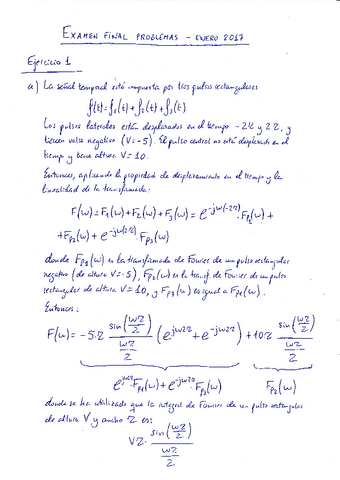 EXAMEN FINAL PROBLEMAS - ENERO 2017
Ejercicio 1
a) La señal temporal está compuesta por tres pulsos rectangulares
f(t) = f₁(t) + f₂(t) + f₃(t)
Los pulsos laterales están desplazados en el tiempo -2τ y 2τ, y
tienen valor negativo (V=-5). El pulso central no está desplazado en el
tiempo y tiene altura V=10.
Entonces, aplicando la propiedad de desplazamiento en el tiempo y la
linealidad de la transformada:
F(ω) = F₁(ω) + F₂(ω) + F₃(ω) = e^{-jω(-2τ)} F_{P1}(ω) +
+ F_{P2}(ω) + e^{-jω(2τ)} · F_{P3}(ω)
donde F_{P1}(ω) es la transformada de Fourier de un pulso rectangular
negativo (de altura V=-5), F_{P2}(ω) es la transf. de Fourier de un pulso
rectangular de altura V=10, y F_{P3}(ω) es igual a F_{P1}(ω).
Entonces:
F(ω) = -5τ sin(ωτ/2) / (ωτ/2) (e^{jω2τ} + e^{-jω2τ}) + 10τ sin(ωτ/2) / (ωτ/2)
e^{jω2τ} · F_{P1}(ω) + e^{-jω2τ} · F_{P3}(ω) F_{P2}(ω)
donde se ha utilizado que la integral de Fourier de un pulso rectangular
de altura V y ancho τ es:
Vτ · sin(ωτ/2) / (ωτ/2)